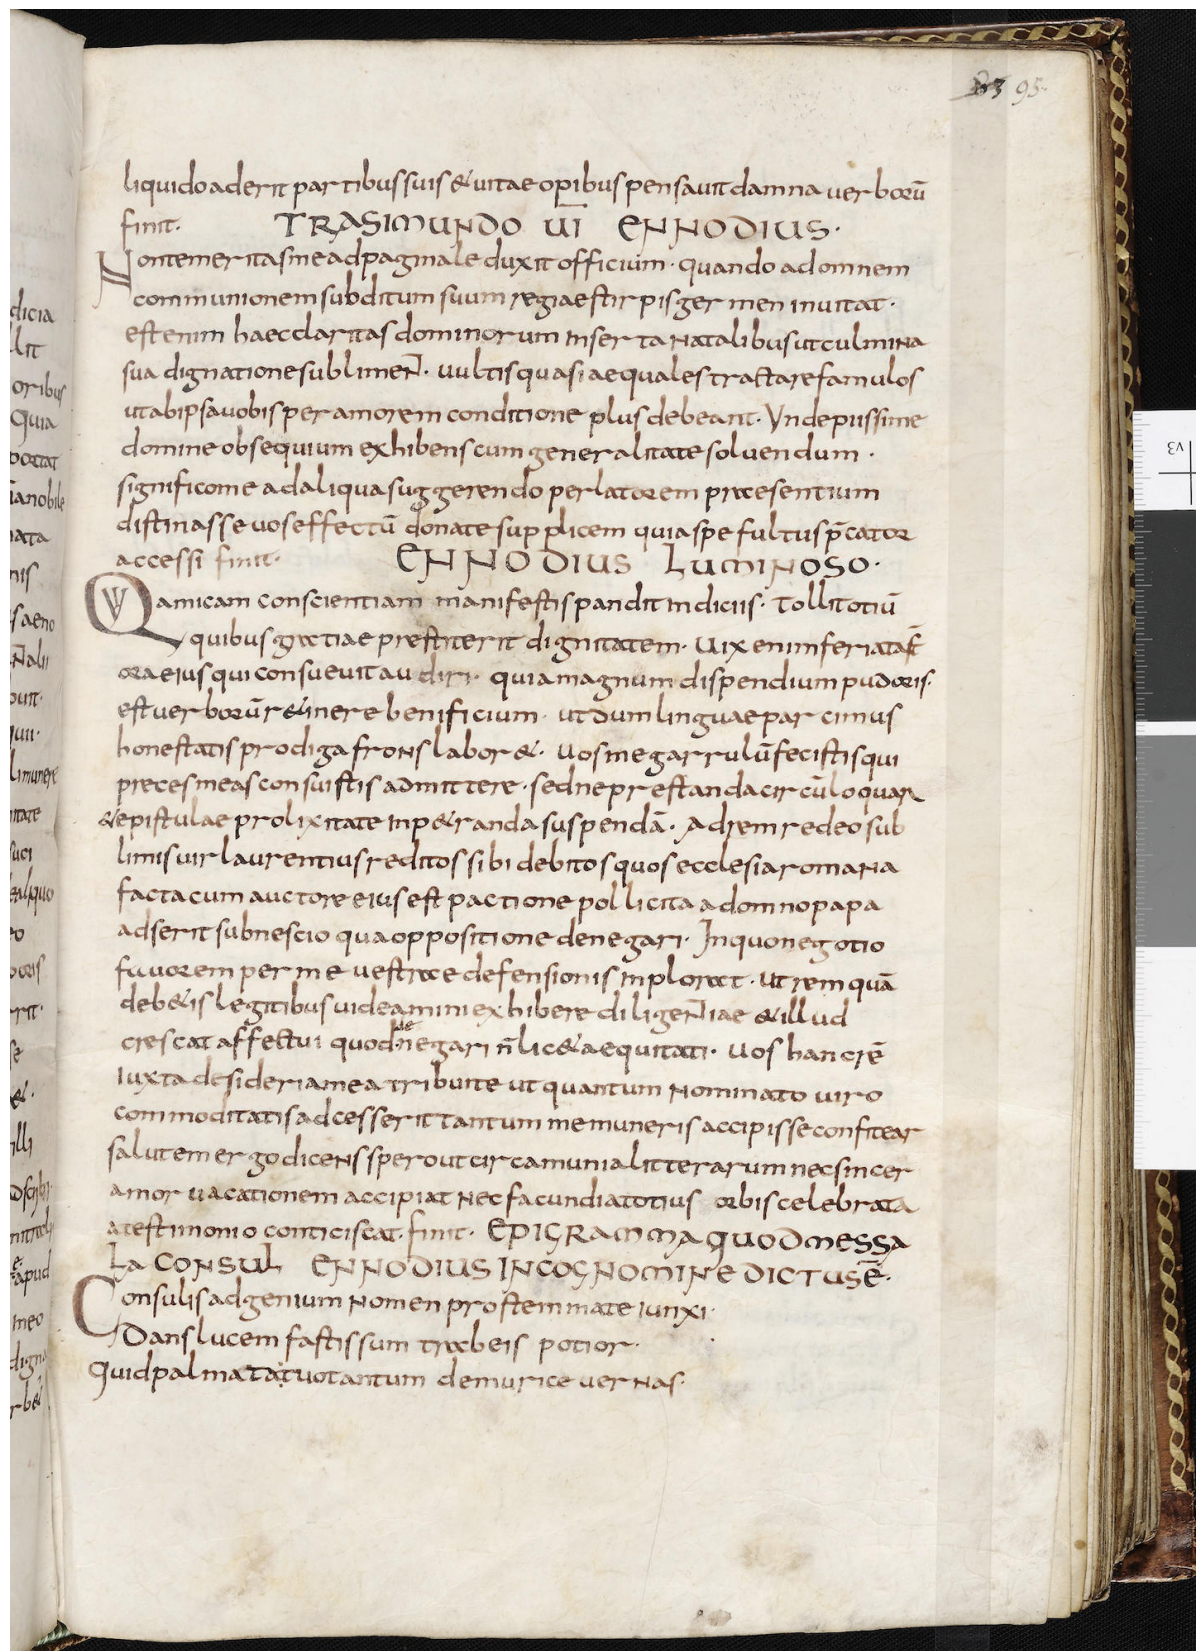 83 95.
liquido aderit partibus suis & uitae opibus pensauit damna uerborū
finit. TRASIMUNDO UI ENNODIUS·
Non temeritas me ad paginale duxit officium· quando ad omnem
communionem subditum suum regiae stirpis germen inuitat·
est enim haec claritas dominorum inserta natalibus ut culmina
sua dignatione sublimeN̄· uultis quasi aequales tractare famulos
ut ab ipsa uobis per amorem conditione plus debeant· Unde piissime
domine obsequium exhibens cum generalitate soluendum·
significo me ad aliqua suggerendo perlatorem praesentium
distinasse uos effectū donate supplicem quia spe fultus p̄cator
accessi finit· ENNODIUS LUMINOSO·
Quamicam conscientiam manifestis pandit indiciis· tollit otiū
quibus gratiae prestiterit dignitatem· Uix enim feriata sт̄
ora eius qui consueuit audiri· quia magnum dispendium pudoris·
est uerborū r&inere benificium· ut dum linguae parcimus
honestatis prodiga frons labor&· Uos me garrulū fecistis qui
preces meas consuistis admittere· sed ne prestanda circūloquar
& epistulae prolixitate inp&randa suspendā· Ad rem redeo sub
limis uir laurentius reditos sibi debitos quos ecclesia romana
facta cum auctore eius est pactione pollicita a domno papa
adserit sub nescio qua oppositione denegari· In quo negotio
fuuorem per me uestrae defensionis inplorat· ut rem quā
deb&is legitibus uideamini exhibere diligeN̄iae & illud
crescat affectui quod denegari n̄ lic& aequitati· Uos hanc rē
iuxta desideria mea tribuite ut quantum nominato uiro
commoditatis adcesserit tantum me muneris accipisse confitear
salutem ergo dicens spero ut circa munia litterarum nec sincer
amor uacationem accipiat nec facundia totius orbis celebrata
a testimonio conticiscat· finit· EPIGRAMMA QUOD MESSA
LA CONSUL ENNODIUS IN COGNOMINE DICTUS Ē·
Consulis ad genium nomen pro stemmate iunxi·
Dans lucem fastis sum trabeis potior·
Quid palmata tuo tantum de murice uernas·